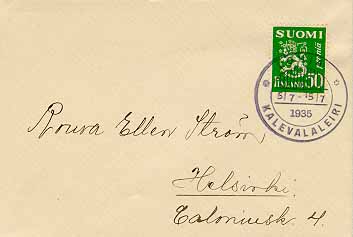 SUOMI
FINLAND 50
5/7.-15/7
1935
KALEVALALEIRI
Rouva Ellen Ström,
Helsinki.
Caloniusk. 4.